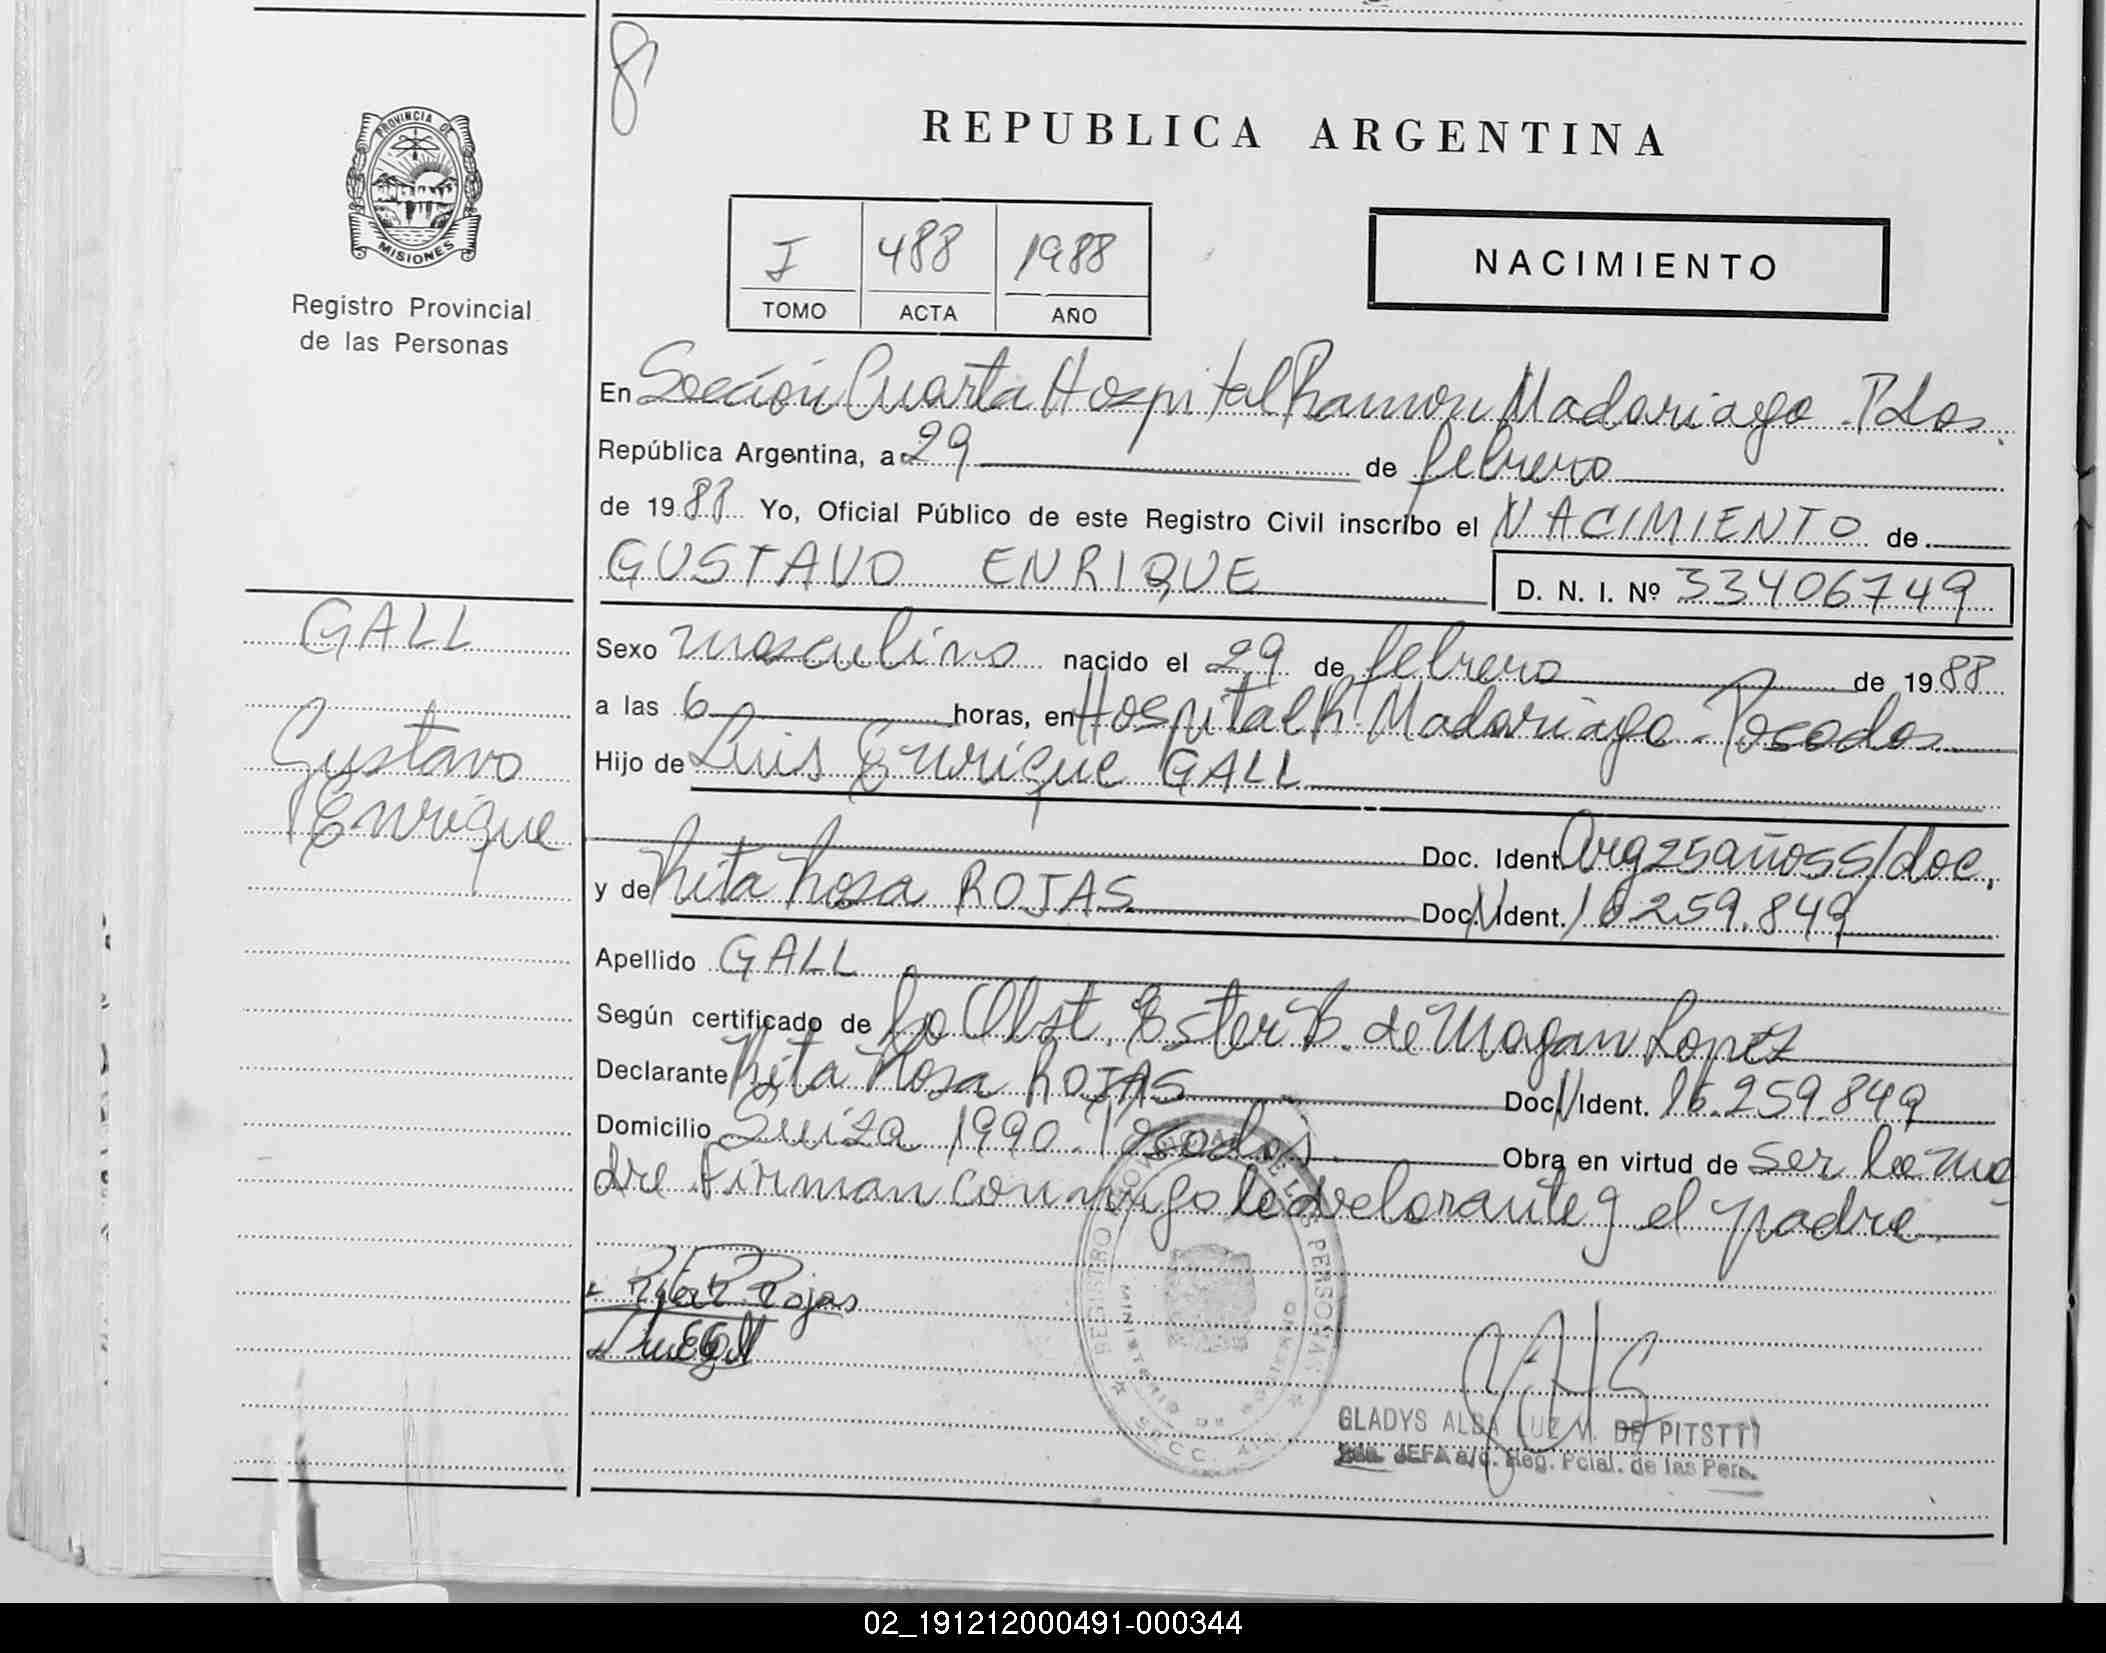 8
PROVINCIA DE
MISIONES
Registro Provincial
de las Personas
REPUBLICA ARGENTINA
I 488 1988
TOMO ACTA AÑO
NACIMIENTO
En Sección Cuarta Hospital Ramon Madariaga. Pdas.
República Argentina, a 29 de febrero
de 1988 Yo, Oficial Público de este Registro Civil inscribo el NACIMIENTO de
GUSTAVO ENRIQUE D. N. I. Nº 33406749
GALL
Gustavo
Enrique
Sexo masculino nacido el 29 de febrero de 1988
a las 6 horas, en Hospital R. Madariaga - Posadas
Hijo de Luis Enrique GALL
Doc. Ident. Arg 25 años s/doc.
y de Rita Rosa ROJAS Doc. N Ident. 16.259.849
Apellido GALL
Según certificado de la Obst. Ester B. de Magan Lopez
Declarante Rita Rosa ROJAS Doc. N Ident. 16.259.849
Domicilio Suiza 1990. Posadas. Obra en virtud de ser la ma
dre Firman conmigo la declarante y el padre.
Rojas
REGISTRO PROVINCIAL DE LAS PERSONAS
MINISTERIO DE GOBIERNO
GLADYS ALBA LUZ V. DE PITSTTI
JEFA a/c. Reg. Pcial. de las Pers.
02_191212000491-000344